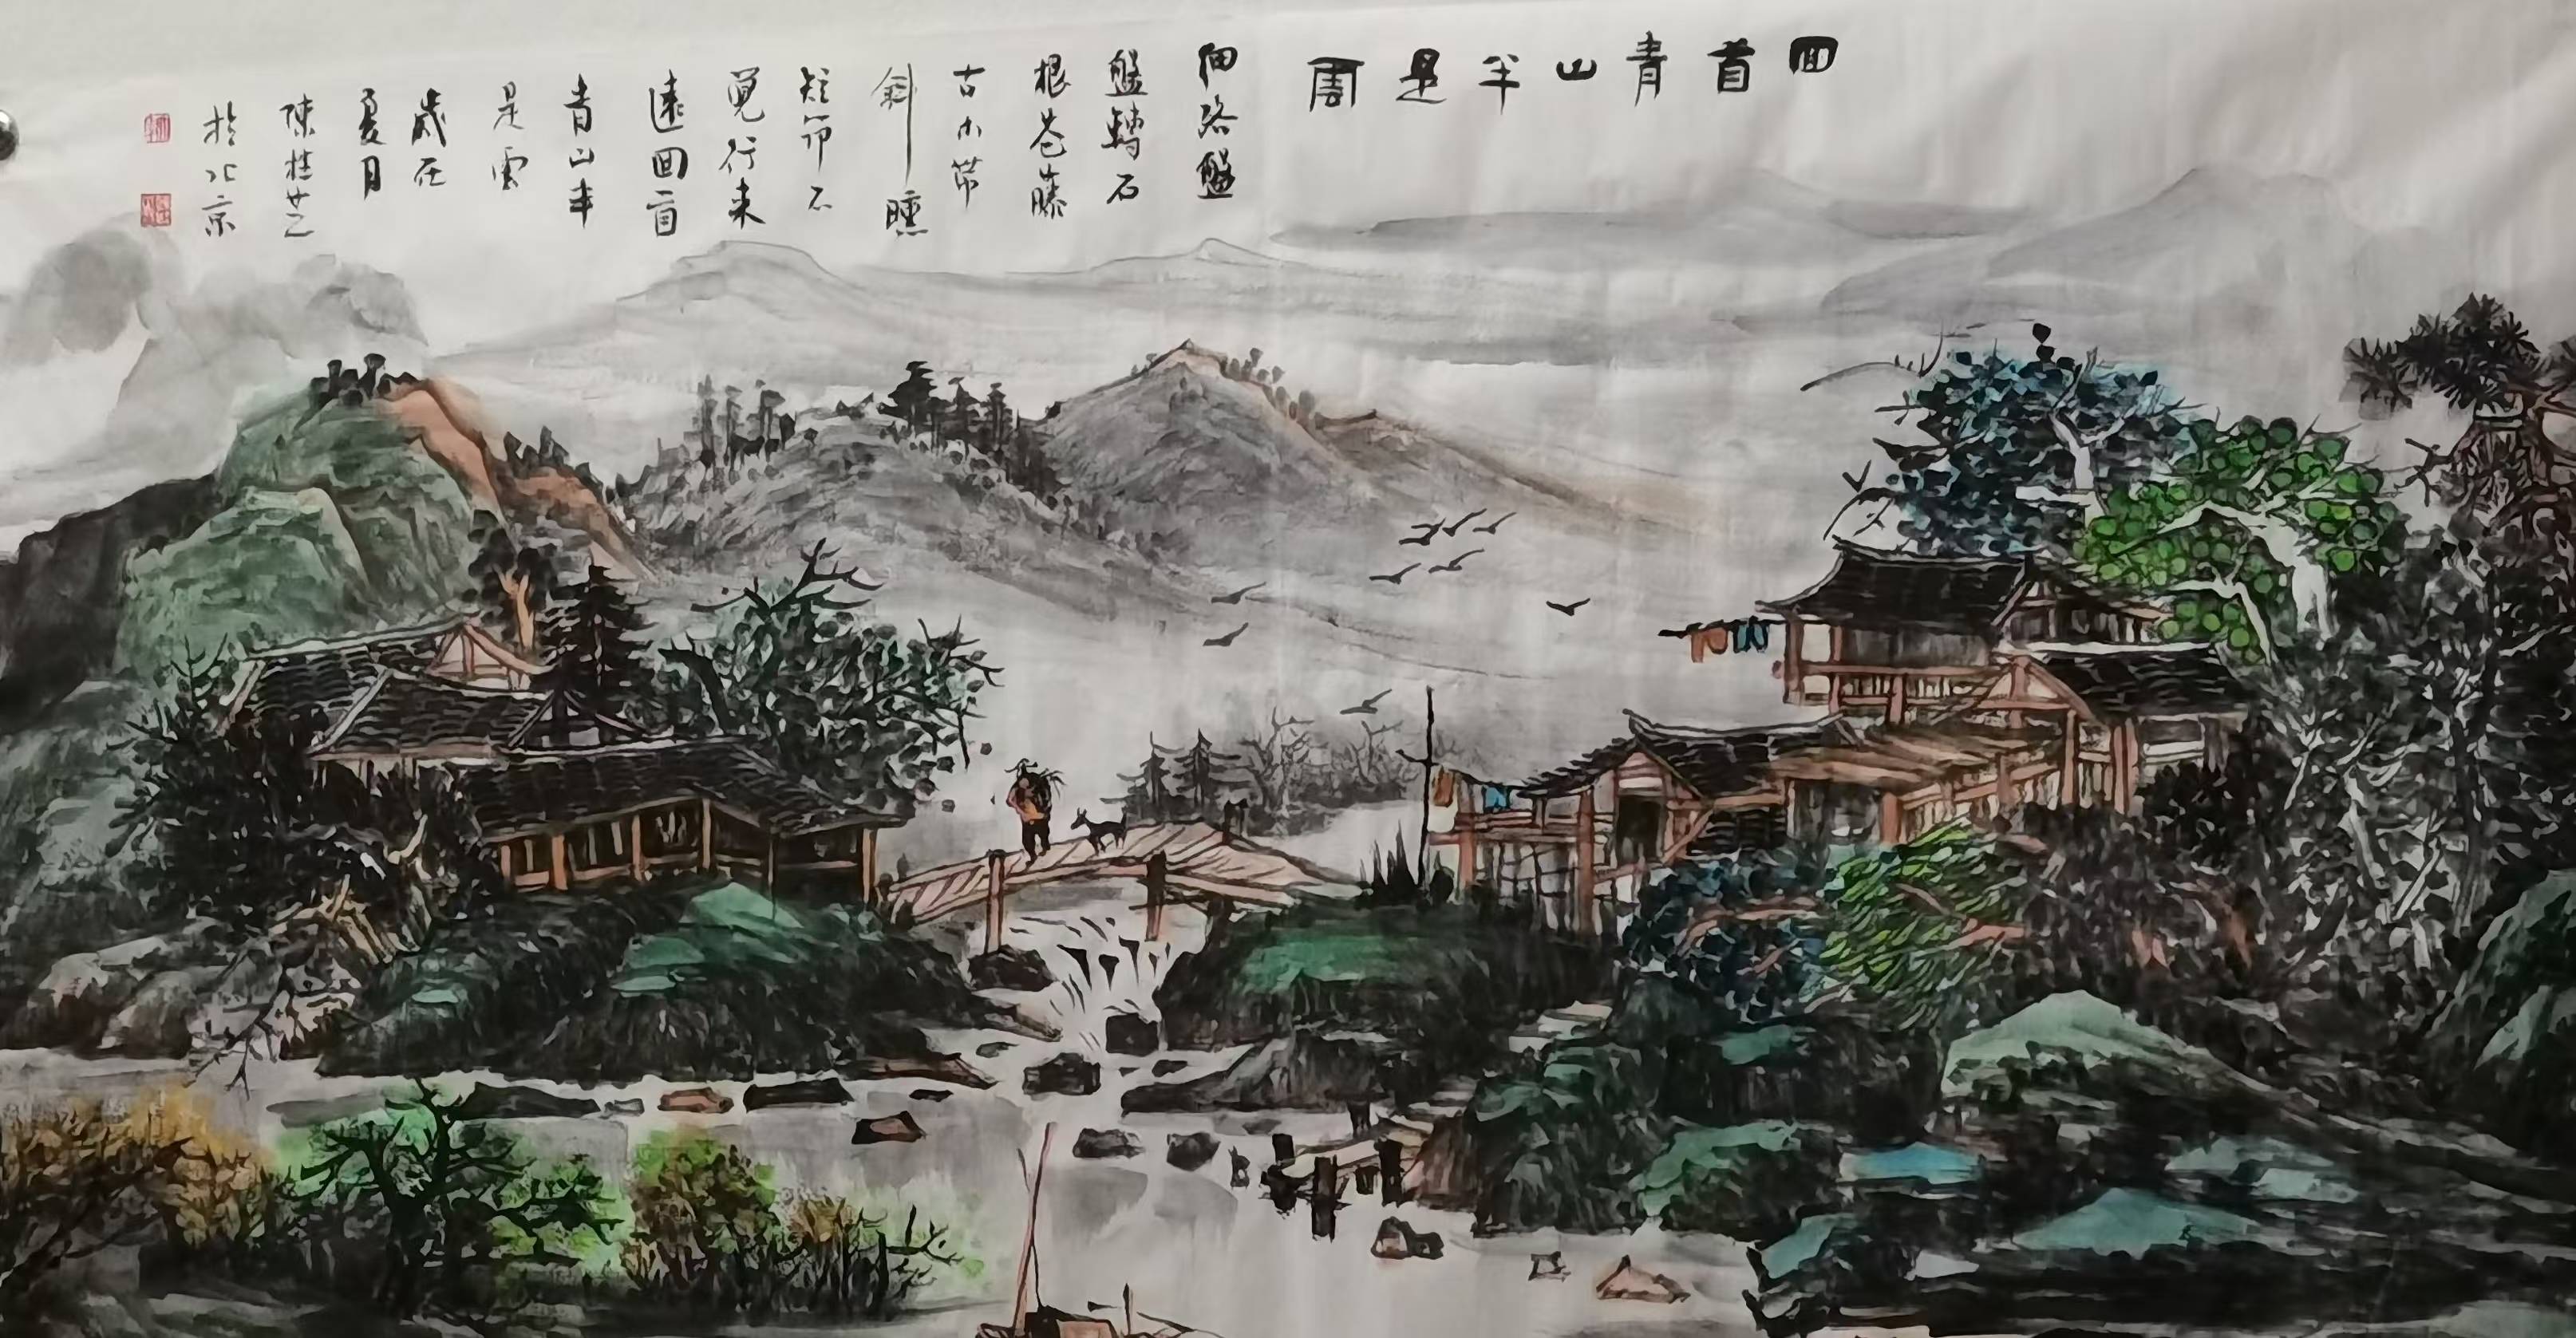 回首青山半是雲
細路盤
盤轉石
根苍藤
古木帶
斜曛
短筇不
覺行来
遠回首
青山半
是雲
歲在
夏月
陳桂芝
於北京